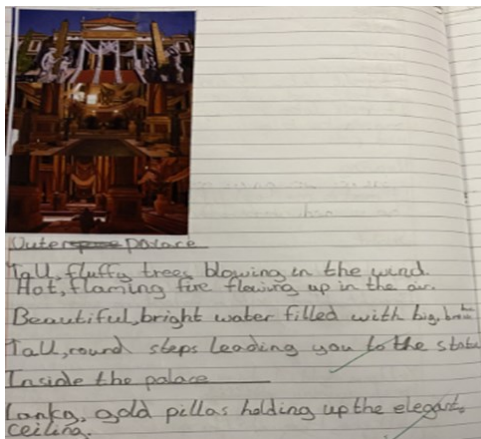 Outer palace
Tall, fluffy trees blowing in the wind.
Hot, flaming fire flowing up in the air.
Beautiful, bright water filled with big,
Tall, round steps leading you to the statu
Inside the palace
Lanky, gold pillas holding up the elegant
ceiling.